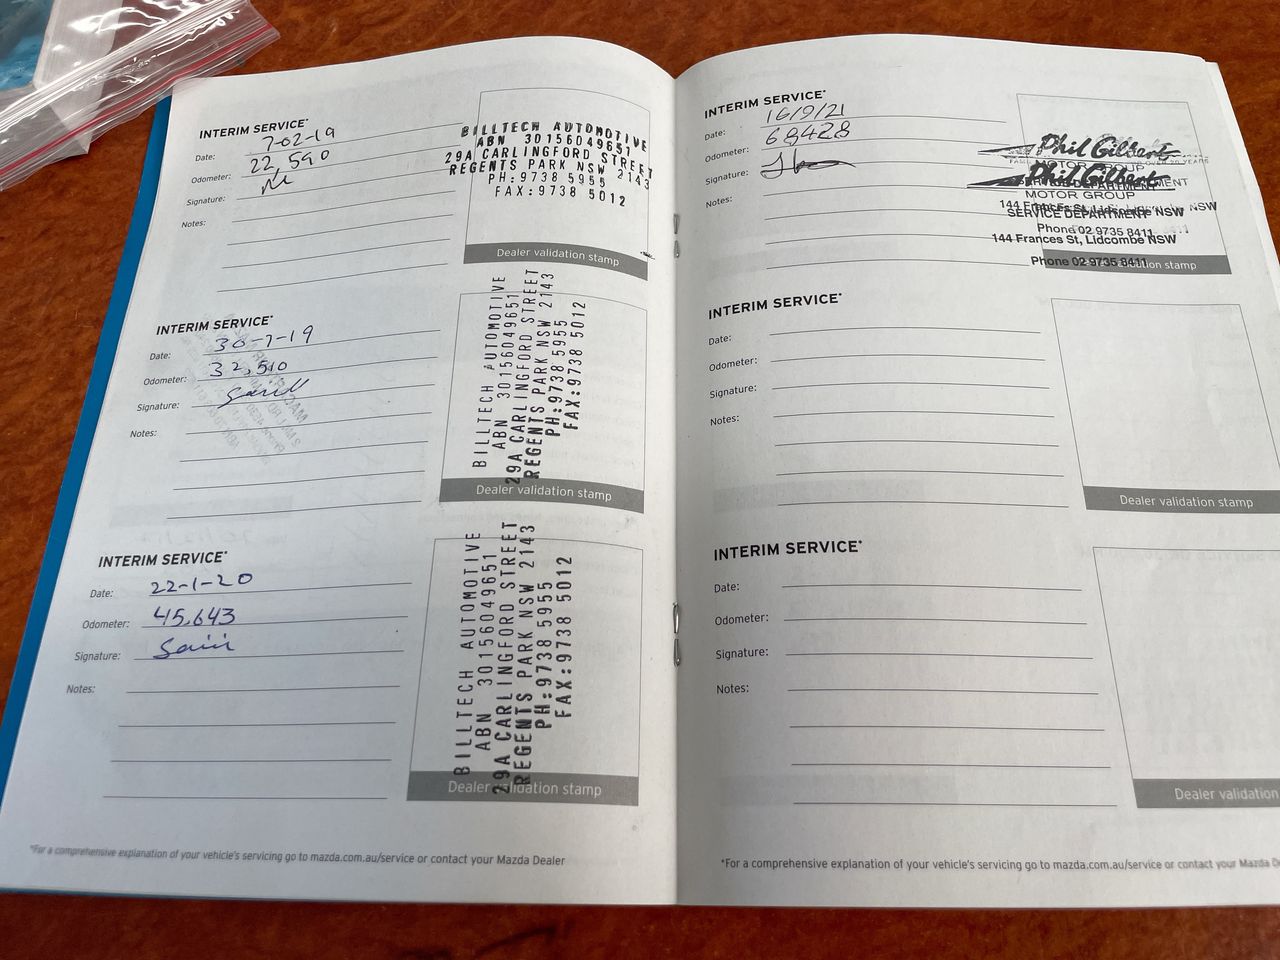 INTERIM SERVICE*
Date: 7-02-19
Odometer: 22,590
Signature:
Notes:
BILLTECH AUTOMOTIVE
ABN 30156049651
29A CARLINGFORD STREET
REGENTS PARK NSW 2143
PH:9738 5955
FAX:9738 5012
Dealer validation stamp
INTERIM SERVICE*
Date: 30-7-19
Odometer: 32,510
Signature:
Notes:
BILLTECH AUTOMOTIVE
ABN 30156049651
29A CARLINGFORD STREET
REGENTS PARK NSW 2143
PH:9738 5955
FAX:9738 5012
Dealer validation stamp
INTERIM SERVICE*
Date: 22-1-20
Odometer: 45,643
Signature:
Notes:
BILLTECH AUTOMOTIVE
ABN 30156049651
29A CARLINGFORD STREET
REGENTS PARK NSW 2143
PH:9738 5955
FAX:9738 5012
Dealer validation stamp
*For a comprehensive explanation of your vehicle's servicing go to mazda.com.au/service or contact your Mazda Dealer
INTERIM SERVICE*
Date: 16/9/21
Odometer: 68428
Signature:
Notes:
Phil Gilbert
MOTOR GROUP
Phil Gilbert
SERVICE DEPARTMENT
MOTOR GROUP
144 Frances St, Lidcombe NSW
SERVICE DEPARTMENT
Phone 02 9735 8411
144 Frances St, Lidcombe NSW
Phone 02 9735 8411
validation stamp
INTERIM SERVICE*
Date:
Odometer:
Signature:
Notes:
Dealer validation stamp
INTERIM SERVICE*
Date:
Odometer:
Signature:
Notes:
Dealer validation
*For a comprehensive explanation of your vehicle's servicing go to mazda.com.au/service or contact your Mazda